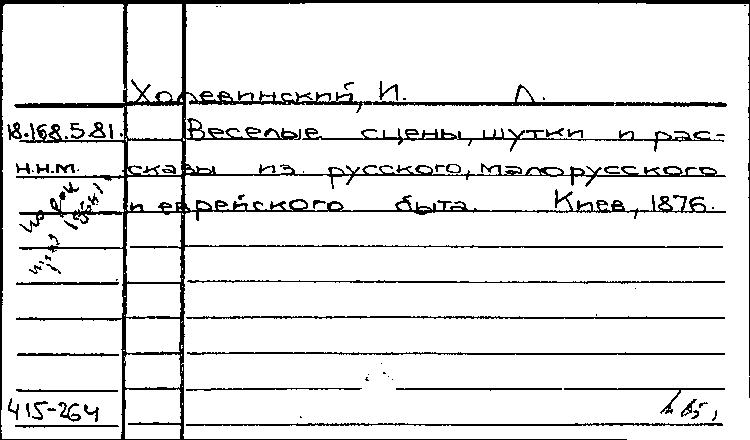 Холевинский, И. Л.
18.168.5.81. Веселые сцены, шутки и рас-
н.н.м. сказы из русского, малорусского
и еврейского быта. Киев, 1876.
415-264